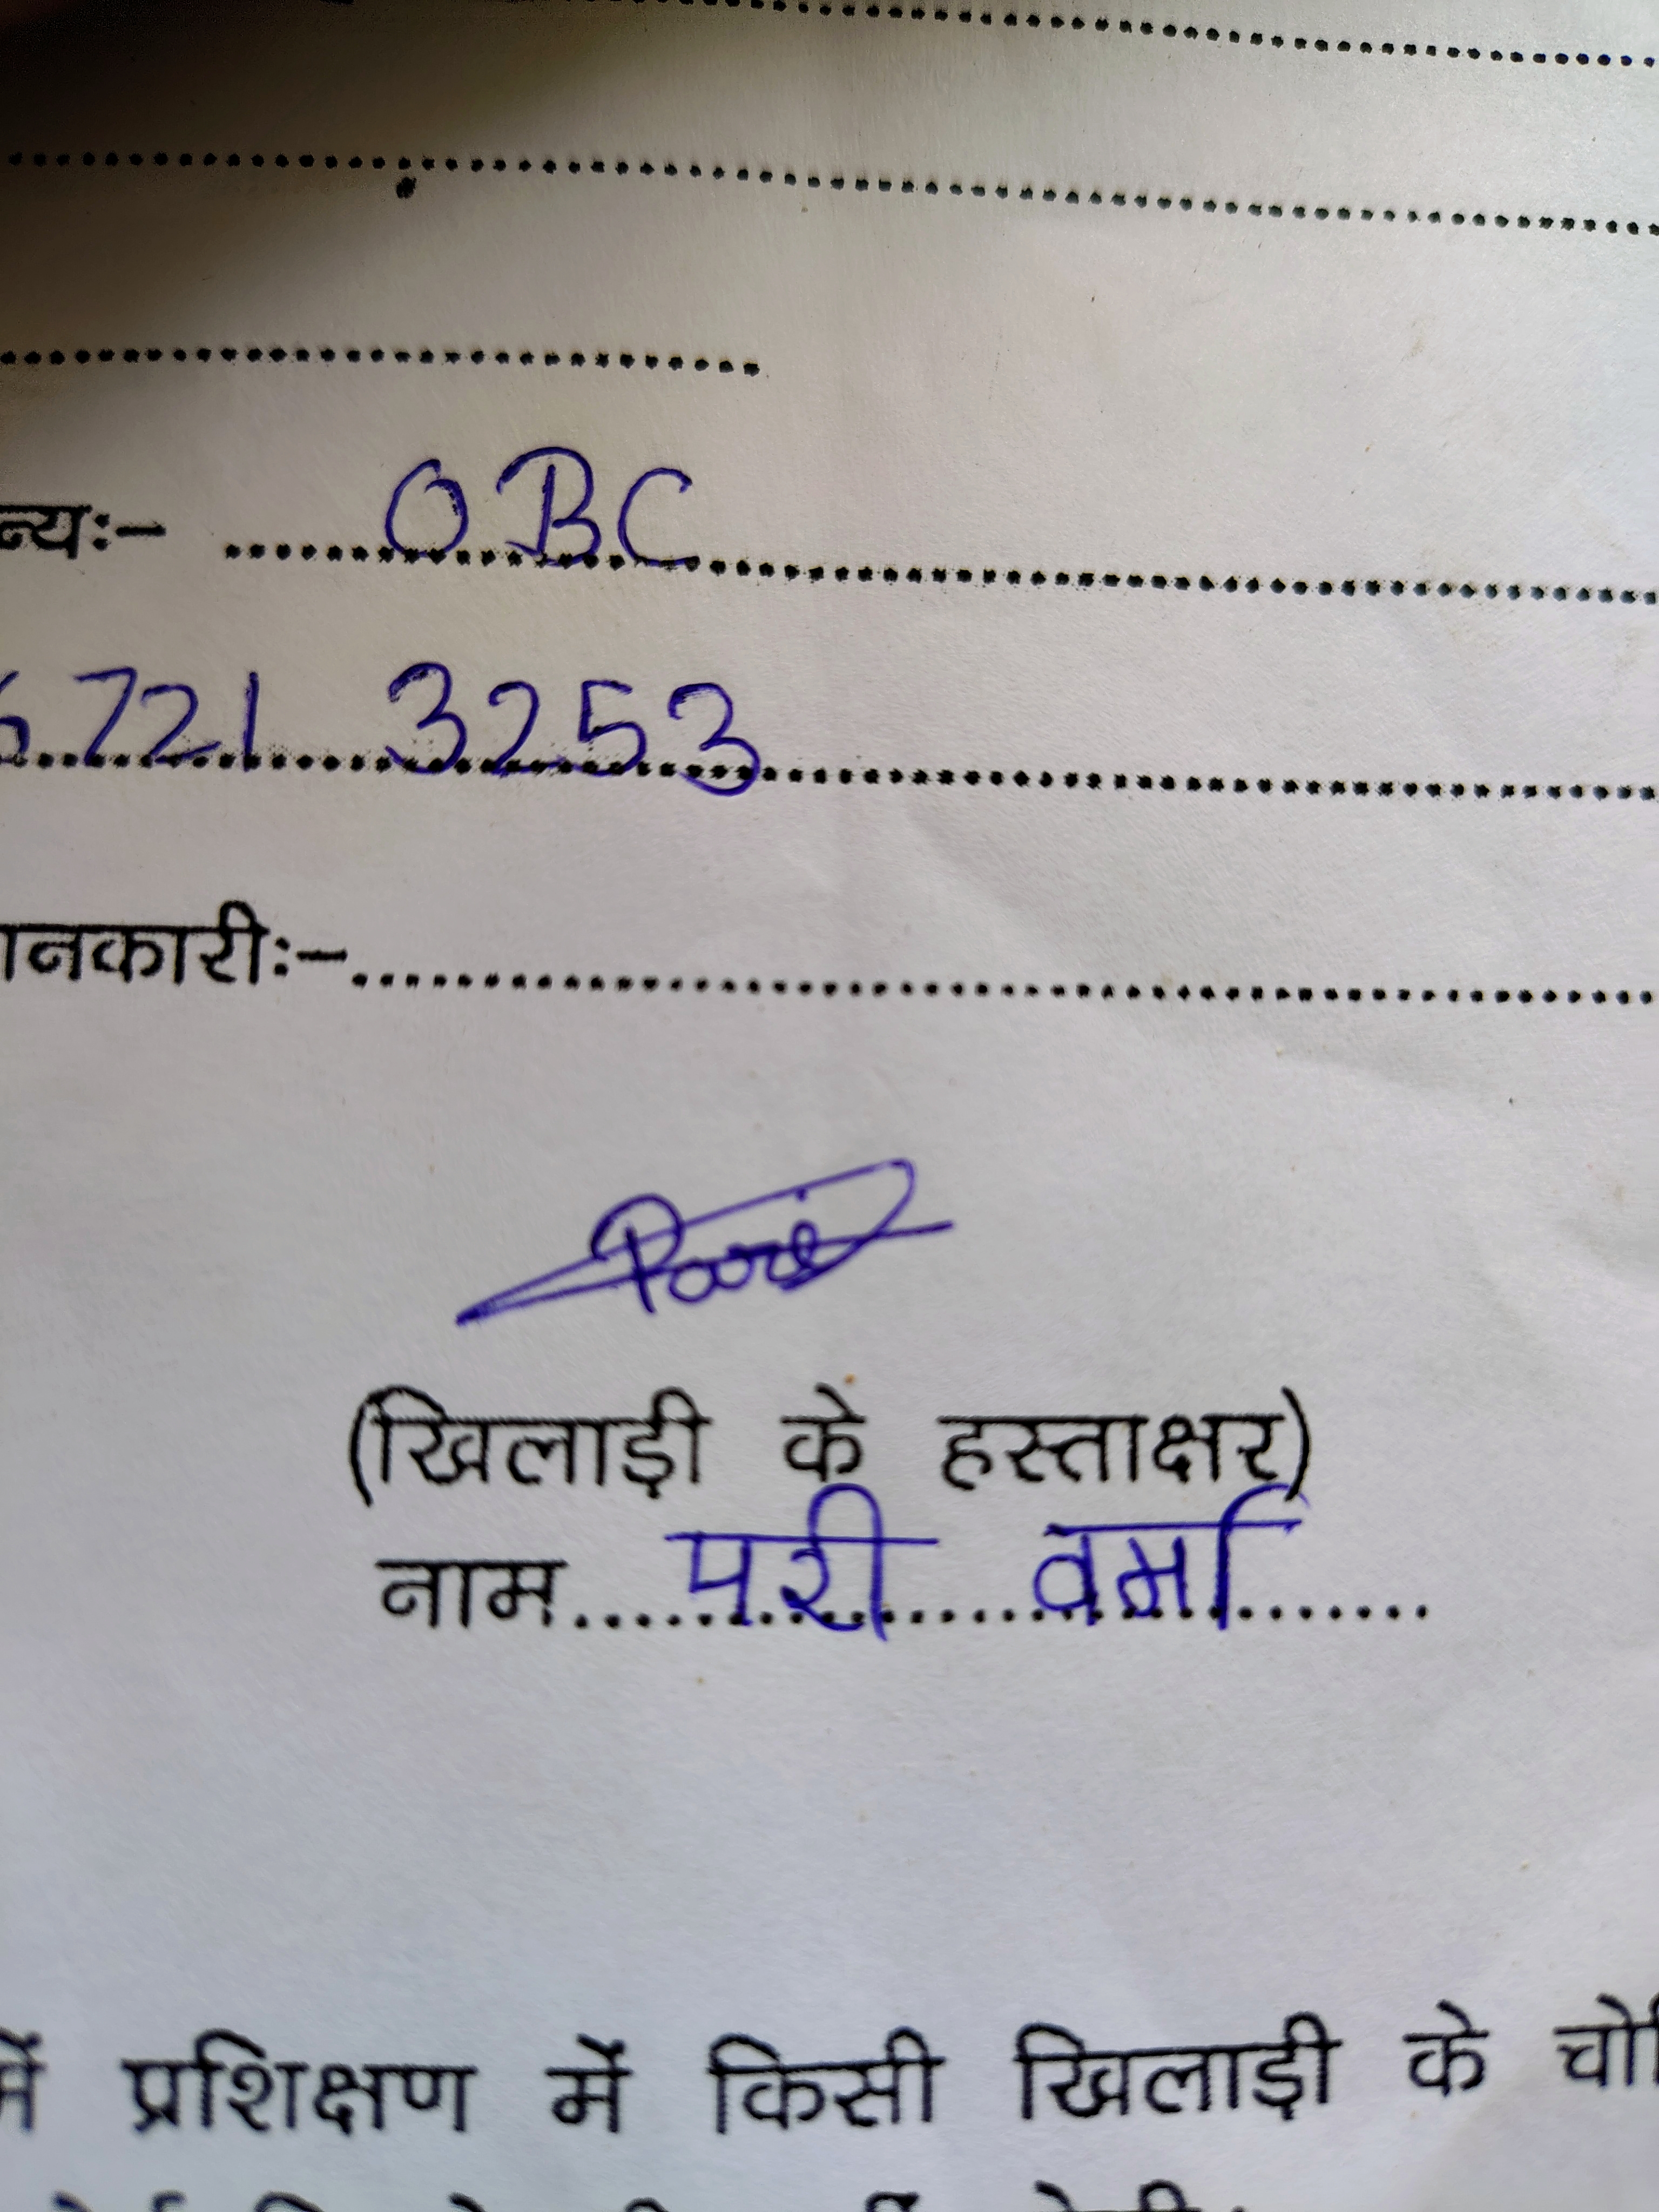 न्यः- ........OBC........
6721 3253
ानकारीः-........
Pari
(खिलाड़ी के हस्ताक्षर)
नाम...परी वर्मा.......
में प्रशिक्षण में किसी खिलाड़ी के